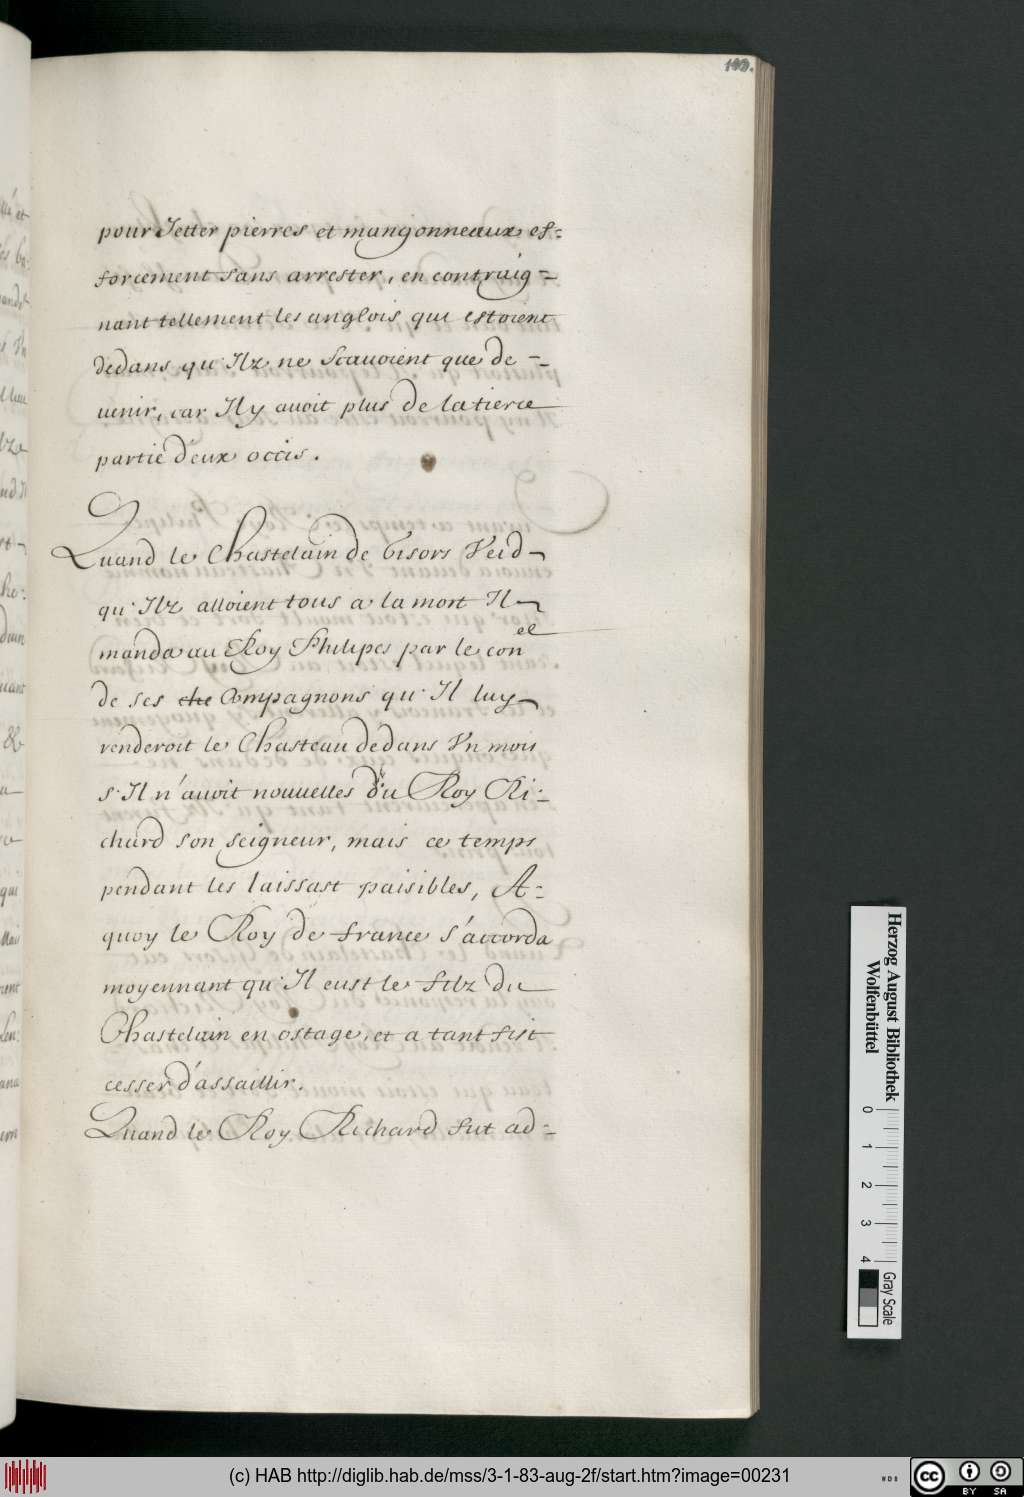 pour Jetter pierres et mangonneaux ef-:
forcement sans arrester, en contraig-:
nant tellement les anglois, qui estoient
dedans, qu'Ilz ne Scauoient que de-:
uenir, car Il y auoit plus de la tierce
partie d'eux occis.
Quand le Chastelain de Gisors Veid
qu'Ilz alloient tous a la mort Il
manda au Roy Philipes par le con^el
de ses che Compagnons qu'Il luy
renderoit le Chasteau dedans Vn mois
s'Il n'auoit nouuelles du Roy Ri-:
chard son seigneur, mais ce temps
pendant les laissast paisibles, A-:
quoy le Roy de france s'accorda
moyennant qu'Il eust le filz du
Chastelain en ostage, et a tant fist
cesser d'assaillir.
Quand le Roy Richard fut ad-:
Herzog August Bibliothek
Wolfenbüttel
0 1 2 3 4
Gray Scale
(c) HAB http://diglib.hab.de/mss/3-1-83-aug-2f/start.htm?image=00231
cc BY SA